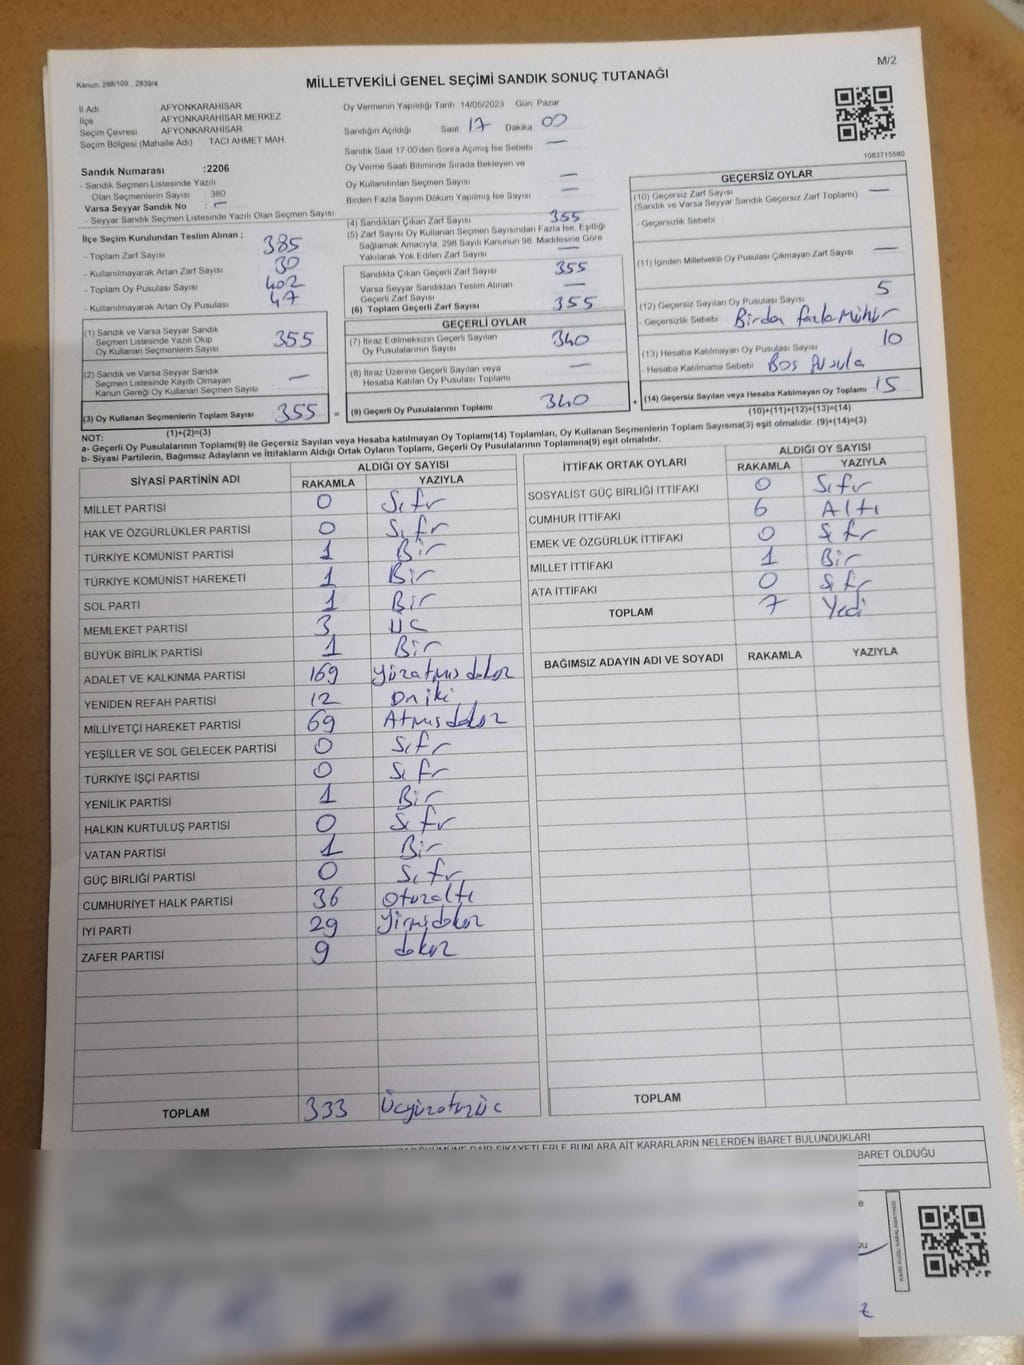 Kanun, 298/105 , 2839/4
M/2
MİLLETVEKİLİ GENEL SEÇİMİ SANDIK SONUÇ TUTANAĞI
İl Adı AFYONKARAHİSAR
İlçe AFYONKARAHİSAR MERKEZ
Seçim Çevresi AFYONKARAHİSAR
Seçim Bölgesi (Mahalle Adı) TACI AHMET MAH
Sandık Numarası :2206
- Sandık Seçmen Listesinde Yazılı
Olan Seçmenlerin Sayısı : 380
Varsa Seyyar Sandık No : –
- Seyyar Sandık Seçmen Listesinde Yazılı Olan Seçmen Sayısı
İlçe Seçim Kurulundan Teslim Alınan ;
- Toplam Zarf Sayısı 385
- Kullanılmayarak Artan Zarf Sayısı 30
- Toplam Oy Pusulası Sayısı 402
- Kullanılmayarak Artan Oy Pusulası 47
(1) Sandık ve Varsa Seyyar Sandık
Seçmen Listesinde Yazılı Olup
Oy Kullanan Seçmenlerin Sayısı 355
(2) Sandık ve Varsa Seyyar Sandık
Seçmen Listesinde Kayıtlı Olmayan
Kanun Gereği Oy Kullanan Seçmen Sayısı —
(3) Oy Kullanan Seçmenlerin Toplam Sayısı 355 =
(1)+(2)=(3)
Oy Vermenin Yapıldığı Tarih :14/05/2023 Gün: Pazar
Sandığın Açıldığı Saat 17 Dakika 00
Sandık Saat 17:00'den Sonra Açılmış İse Sebebi —
Oy Verme Saati Bitiminde Sırada Bekleyen ve
Oy Kullandırılan Seçmen Sayısı —
Birden Fazla Sayım Döküm Yapılmış İse Sayısı —
(4) Sandıktan Çıkan Zarf Sayısı 355
(5) Zarf Sayısı Oy Kullanan Seçmen Sayısından Fazla İse, Eşitliği
Sağlamak Amacıyla, 298 Sayılı Kanunun 98. Maddesine Göre
Yakılarak Yok Edilen Zarf Sayısı —
Sandıkta Çıkan Geçerli Zarf Sayısı 355
Varsa Seyyar Sandıktan Teslim Alınan
Geçerli Zarf Sayısı —
(6) Toplam Geçerli Zarf Sayısı 355
GEÇERLİ OYLAR
(7) İtiraz Edilmeksizin Geçerli Sayılan
Oy Pusulalarının Sayısı 340
(8) İtiraz Üzerine Geçerli Sayılan veya
Hesaba Katılan Oy Pusulası Toplamı —
(9) Geçerli Oy Pusulalarının Toplamı 340 +
1083715580
GEÇERSİZ OYLAR
(10) Geçersiz Zarf Sayısı
(Sandık ve Varsa Seyyar Sandık Geçersiz Zarf Toplamı) —
- Geçersizlik Sebebi :
(11) İçinden Milletvekili Oy Pusulası Çıkmayan Zarf Sayısı —
(12) Geçersiz Sayılan Oy Pusulası Sayısı 5
- Geçersizlik Sebebi Birden fazla Mühür
(13) Hesaba Katılmayan Oy Pusulası Sayısı 10
- Hesaba Katılmama Sebebi Boş Pusula
(14) Geçersiz Sayılan veya Hesaba Katılmayan Oy Toplamı 15
(10)+(11)+(12)+(13)=(14)
NOT:
a- Geçerli Oy Pusulalarının Toplamı(9) ile Geçersiz Sayılan veya Hesaba katılmayan Oy Toplamı(14) Toplamları, Oy Kullanan Seçmenlerin Toplam Sayısına(3) eşit olmalıdır. (9)+(14)=(3)
b- Siyasi Partilerin, Bağımsız Adayların ve İttifakların Aldığı Ortak Oyların Toplamı, Geçerli Oy Pusulalarının Toplamına(9) eşit olmalıdır.
SİYASİ PARTİNİN ADI ALDIĞI OY SAYISI
RAKAMLA YAZIYLA
MİLLET PARTİSİ 0 Sıfır
HAK VE ÖZGÜRLÜKLER PARTİSİ 0 Sıfır
TÜRKİYE KOMÜNİST PARTİSİ 1 Bir
TÜRKİYE KOMÜNİST HAREKETİ 1 Bir
SOL PARTİ 1 Bir
MEMLEKET PARTİSİ 3 Üç
BÜYÜK BİRLİK PARTİSİ 1 Bir
ADALET VE KALKINMA PARTİSİ 169 Yüzatmışdokuz
YENİDEN REFAH PARTİSİ 12 Oniki
MİLLİYETÇİ HAREKET PARTİSİ 69 Atmışdokuz
YEŞİLLER VE SOL GELECEK PARTİSİ 0 Sıfır
TÜRKİYE İŞÇİ PARTİSİ 0 Sıfır
YENİLİK PARTİSİ 1 Bir
HALKIN KURTULUŞ PARTİSİ 0 Sıfır
VATAN PARTİSİ 1 Bir
GÜÇ BİRLİĞİ PARTİSİ 0 Sıfır
CUMHURİYET HALK PARTİSİ 36 Otuzaltı
İYİ PARTİ 29 Yirmidokuz
ZAFER PARTİSİ 9 dokuz
TOPLAM 333 Üçyüzotuzüç
İTTİFAK ORTAK OYLARI ALDIĞI OY SAYISI
RAKAMLA YAZIYLA
SOSYALİST GÜÇ BİRLİĞİ İTTİFAKI 0 Sıfır
CUMHUR İTTİFAKI 6 Altı
EMEK VE ÖZGÜRLÜK İTTİFAKI 0 Sıfır
MİLLET İTTİFAKI 1 Bir
ATA İTTİFAKI 0 Sıfır
TOPLAM 7 Yedi
BAĞIMSIZ ADAYIN ADI VE SOYADI RAKAMLA YAZIYLA
TOPLAM
ŞİKAYETLERLE BUNLARA AİT KARARLARIN NELERDEN İBARET BULUNDUKLARI
BARET OLDUĞU